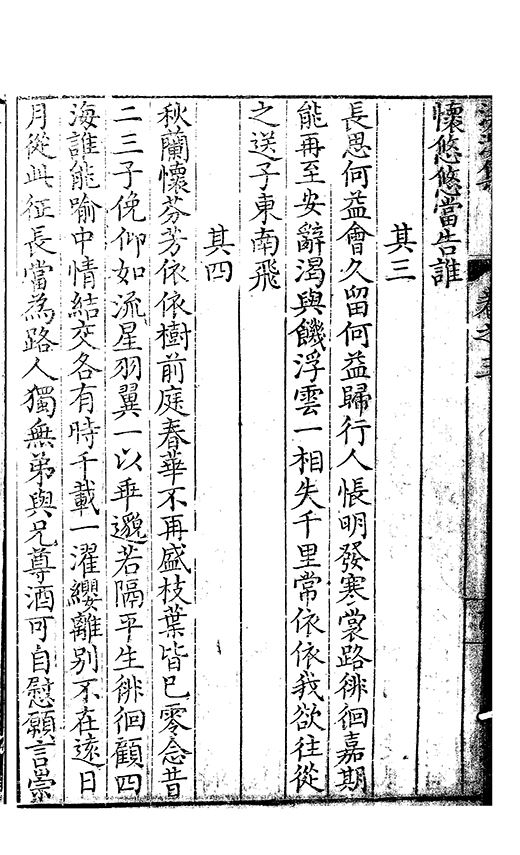 懷悠悠當告誰
其三
長思何益會久留何益歸行人悵明發寒裳路徘徊嘉期
能再至安辭渴與饑浮雲一相失千里常依依我欲往從
之送子東南飛
其四
秋蘭懷芬芳依依樹前庭春華不再盛枝葉皆已零念昔
二三子俛仰如流星羽翼一以乖邈若隔平生徘徊顧四
海誰能喻中情結交各有時千載一濯纓離别不在遠日
月從此征長當為路人獨無弟與兄尊酒可自慰願言崇